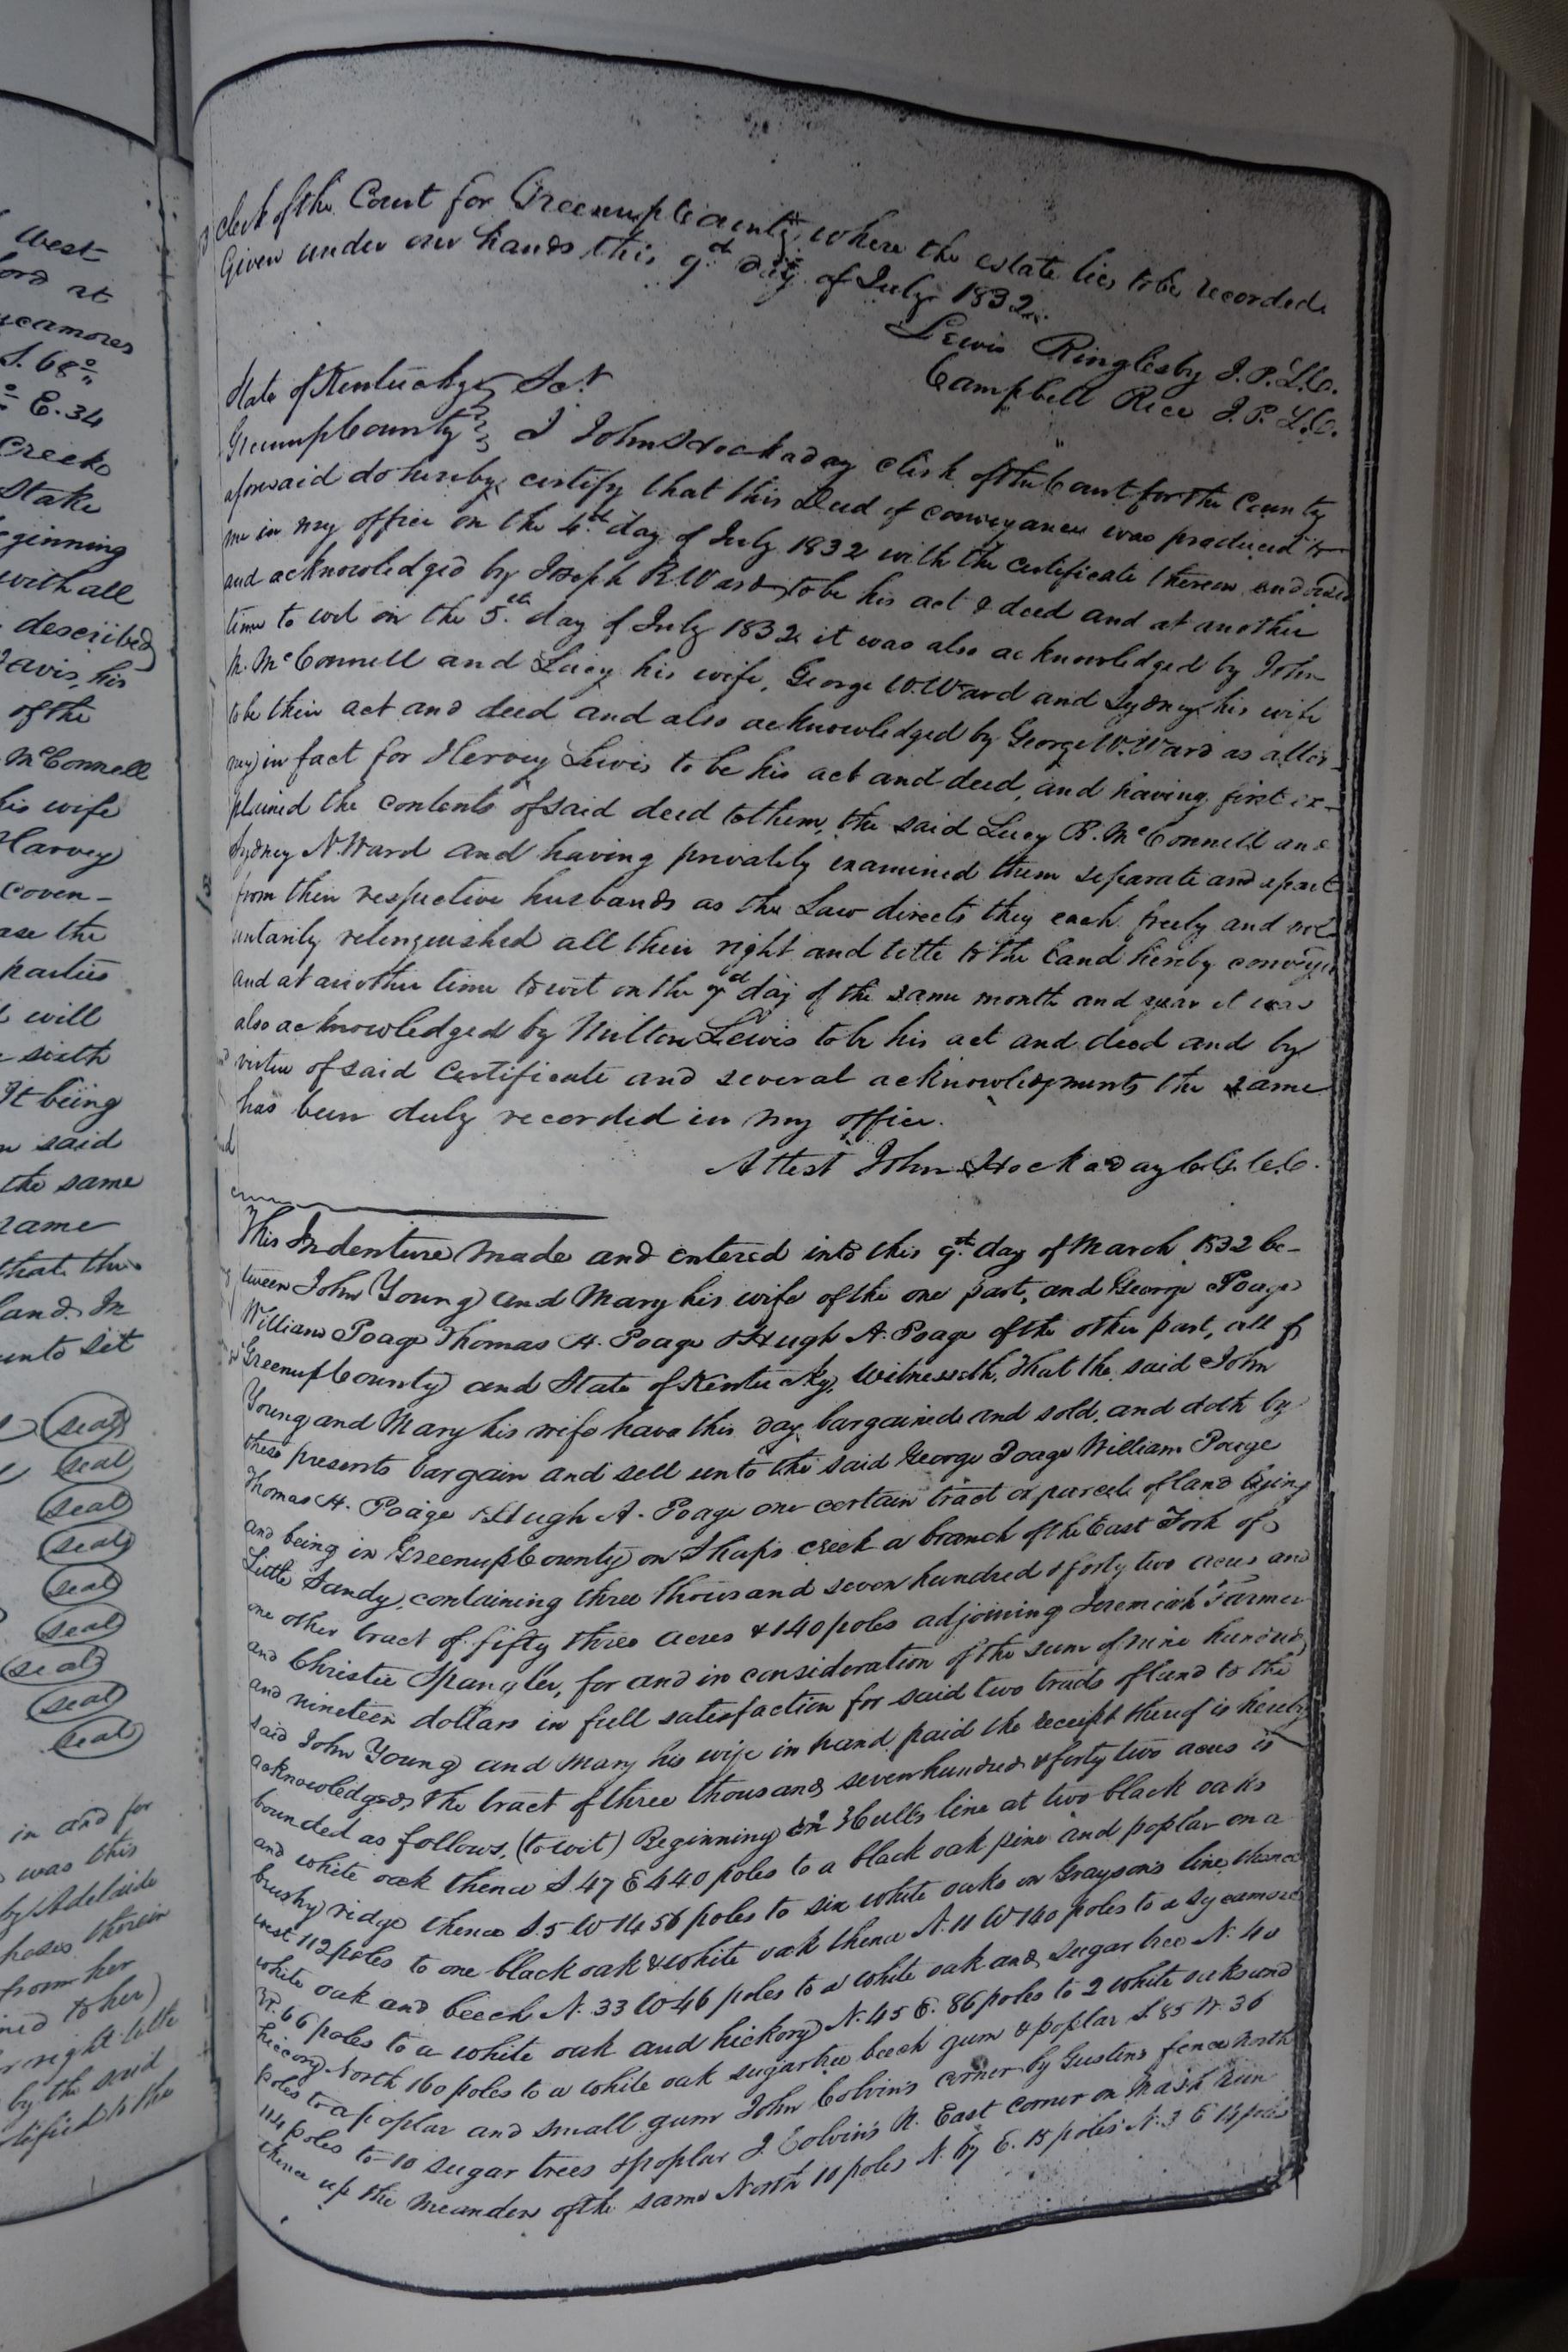 West
at
Sycamores
S. 68°
E. 34
Creek
Stake
with all
described
his
of the
McConnell
his wife
Harvey
Coven-
the
parties
will
sixth
It being
said
the same
same
that the
land. In
unto set
seal
seal
seal
seal
seal
seal
seal
seal
seal
in and for
was this
by Adelaide
therein
from her
to her)
right title
by the said
to the
clerk of the Court for Greenup County where the estate lies to be recorded
Given under our hands this 9th day of July 1832.
Lewis Ringlesby J.P.L.C.
Campbell Rice J.P.L.C.
State of Kentucky Sct
Greenup County I John Hockaday clerk of the Court for the County
aforesaid do hereby certify that this Deed of conveyance was produced to
me in my office on the 4th day of July 1832 with the certificate thereon endorsed
and acknowledged by Joseph R. Ward to be his act & deed and at another
time to wit on the 5th day of July 1832 it was also acknowledged by John
M. McConnell and Lucy his wife, George W. Ward and Sydney his wife
to be their act and deed and also acknowledged by George W. Ward as attor-
ney in fact for Hervey Lewis to be his act and deed, and having first ex-
plained the contents of said deed to them, the said Lucy R. McConnell and
Sydney N. Ward and having privately examined them separate and apart
from their respective husbands as the Law directs they each freely and vol-
untarily relinquished all their right and title to the Land hereby conveyed
and at another time to wit on the day of the same month and year it was
also acknowledged by Milton Lewis to be his act and deed and by
virtue of said Certificate and several acknowledgments the same
has been duly recorded in my office.
Attest John Hockaday C.G.C.C.
This Indenture made and entered into this 9th day of March 1832 be-
tween John Young and Mary his wife of the one part, and George Poage
William Poage Thomas H. Poage & Hugh A. Poage of the other part, all of
Greenup County and State of Kentucky, Witnesseth, That the said John
Young and Mary his wife have this day bargained and sold, and doth by
these presents bargain and sell unto the said George Poage William Poage
Thomas H. Poage & Hugh A. Poage one certain tract or parcel of land lying
and being in Greenup County on Shaps creek a branch of the East Fork of
Little Sandy, containing three thousand seven hundred & forty two acres and
one other tract of fifty three acres & 140 poles adjoining Jeremiah Farmer
and Christie Spangler, for and in consideration of the sum of nine hundred
and nineteen dollars in full satisfaction for said two tracts of land to the
said John Young and Mary his wife in hand paid the receipt thereof is hereby
acknowledged, The tract of three thousand seven hundred & forty two acres is
bounded as follows, (to wit) Beginning on Hulls line at two black oaks
and white oak thence S. 47 E 440 poles to a black oak pine and poplar on a
brushy ridge thence S. 5 W 1456 poles to six white oaks in Graysons line thence
west 112 poles to one black oak & white oak thence N. 11 W 140 poles to a sycamore
white oak and beech N. 33 W 46 poles to a white oak and sugar tree N. 40
W. 66 poles to a white oak and hickory N. 45 E. 86 poles to 2 white oaks and
hickory North 160 poles to a white oak sugartree beech gum & poplar S. 85 W. 36
poles to a poplar and small gum John Colvin's corner by Gustins fence North
114 poles to 10 sugar trees & poplar J. Colvin's N. East corner on Mash Run
thence up the meanders of the same North 10 poles N. 67 E. 15 poles N. 3 E 14 poles